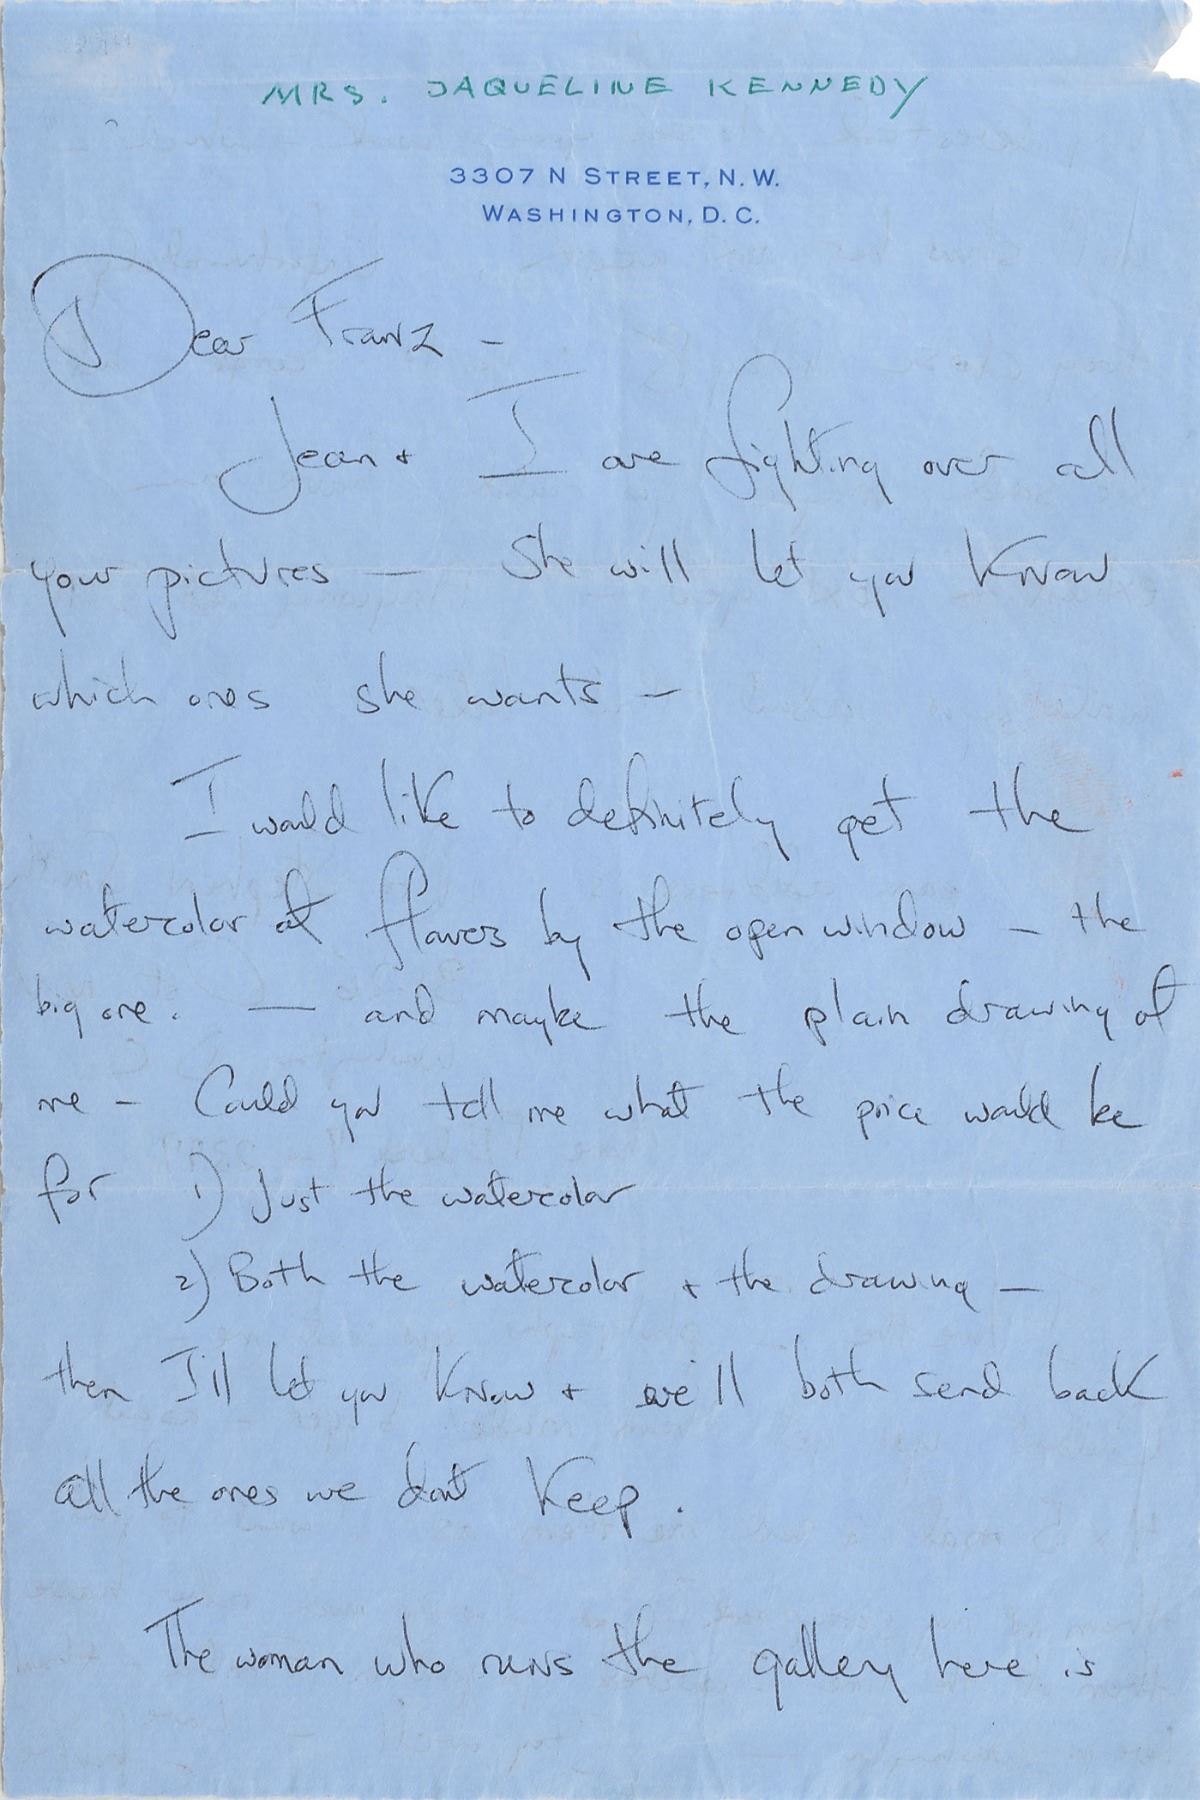 MRS. JAQUELINE KENNEDY
3307 N STREET, N.W.
WASHINGTON, D.C.
Dear Franz -
Jean + I are fighting over all
your pictures — She will let you know
which ones she wants —
I would like to definitely get the
watercolor of flowers by the open window — the
big one. — and maybe the plain drawing of
me - Could you tell me what the price would be
for 1) Just the watercolor
2) Both the watercolor + the drawing —
then I'll let you know + we'll both send back
all the ones we dont keep.
The woman who runs the gallery here is